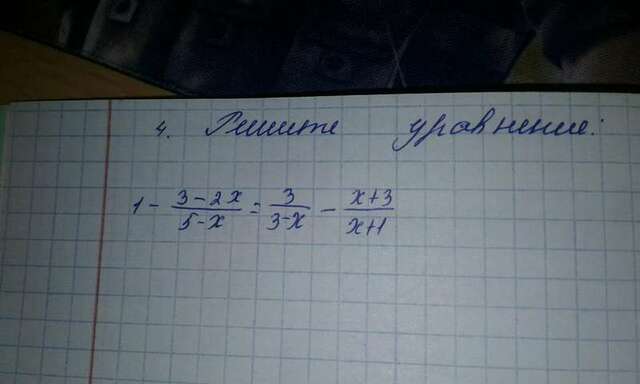 4. Решите уравнение:
1 - \frac{3-2x}{5-x} = \frac{3}{3-x} - \frac{x+3}{x+1}